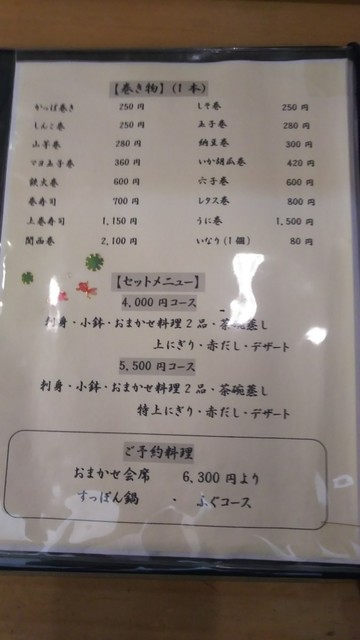 【巻き物】(1本)
かっぱ巻き 250円 しそ巻 250円
しんこ巻 250円 玉子巻 280円
山芋巻 280円 納豆巻 300円
マヨ玉子巻 360円 いか胡瓜巻 420円
鉄火巻 600円 穴子巻 600円
巻寿司 700円 レタス巻 800円
上巻寿司 1,150円 うに巻 1,500円
関西巻 2,100円 いなり(1個) 80円
【セットメニュー】
4,000円コース
刺身・小鉢・おまかせ料理2品・茶碗蒸し
上にぎり・赤だし・デザート
5,500円コース
刺身・小鉢・おまかせ料理2品・茶碗蒸し
特上にぎり・赤だし・デザート
ご予約料理
おまかせ会席 6,300円より
すっぽん鍋 ・ ふぐコース